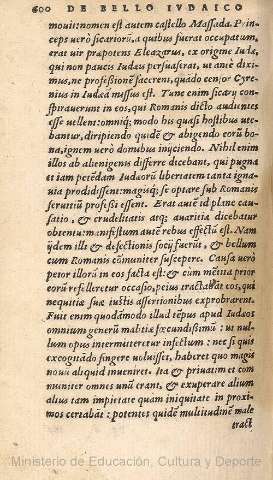 600 DE BELLO IVDAICO
mouit: nomen est autem castello Massada. Prin
ceps verò sicariorũ, a quibus fuerat occupatum,
erat vir præpotens Eleazarus, ex origine Iudæ,
qui non paucis Iudæis persuaserat, ut antè dixi-
mus, ne professionẽ facerent, quãdo censor Cyre
nius in Iudæã missus est. Tunc enim sicarÿ con-
spirauerunt in eos, qui Romanis dicto audientes
esse vellent: omniq; modo his quasi hostibus vte-
bantur, diripiendo quidẽ & abigendo eorũ bo
na, ignem verò domubus inÿciendo. Nihil enim
illos ab alienigenis differre dicebant, qui pugna
et iam petẽdam Iudæorũ libertatem tanta igna-
uia prodidissent: magisq; se optare sub Romanis
seruitiũ professi essent. Erat autẽ id planè cau-
satio, & crudelitatis atq; auaritiæ dicebatur
obtentu: manifestum autẽ rebus effectũ est. Nam
ÿdem illis & defectionis socÿ fuerũt, & bellum
cum Romanis cõmuniter suscepere. Causa verò
peior illorũ in eos facta est: & cùm mẽtita prior
eorũ refelleretur occasio, peius tractabãt eos, qui
nequitiæ suæ iustis assertionibus exprobrarent.
Fuit enim quodãmodo illud tẽpus apud Iudæos
omnium generũ malitiæ fœcundissimũ: ut nul-
lum opus intermitteretur infectum: nec si quis
excogitãdo fingere voluisset, haberet quo magis
noui aliquid inueniret. Ita & priuatim et com
muniter omnes unũ erant, & exuperare alium
alius tam impietate quàm iniquitate in proxi-
mos certabãt: potentes quidẽ multitudinẽ malè
tract
Ministerio de Educación, Cultura y Deporte